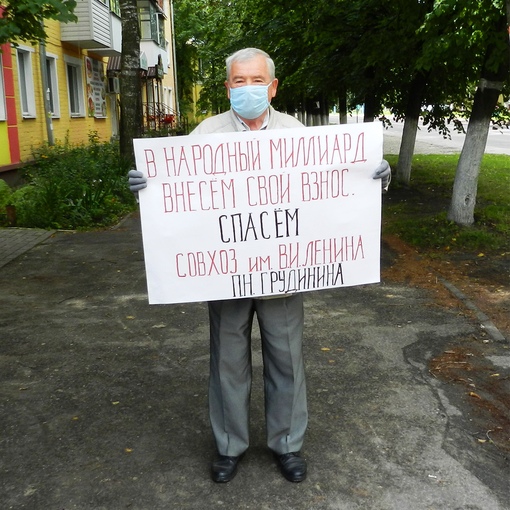 В НАРОДНЫЙ МИЛЛИАРД
ВНЕСЁМ СВОЙ ВЗНОС.
СПАСЁМ
СОВХОЗ ИМ. В.И.ЛЕНИНА
ПН. ГРУДИНИНА